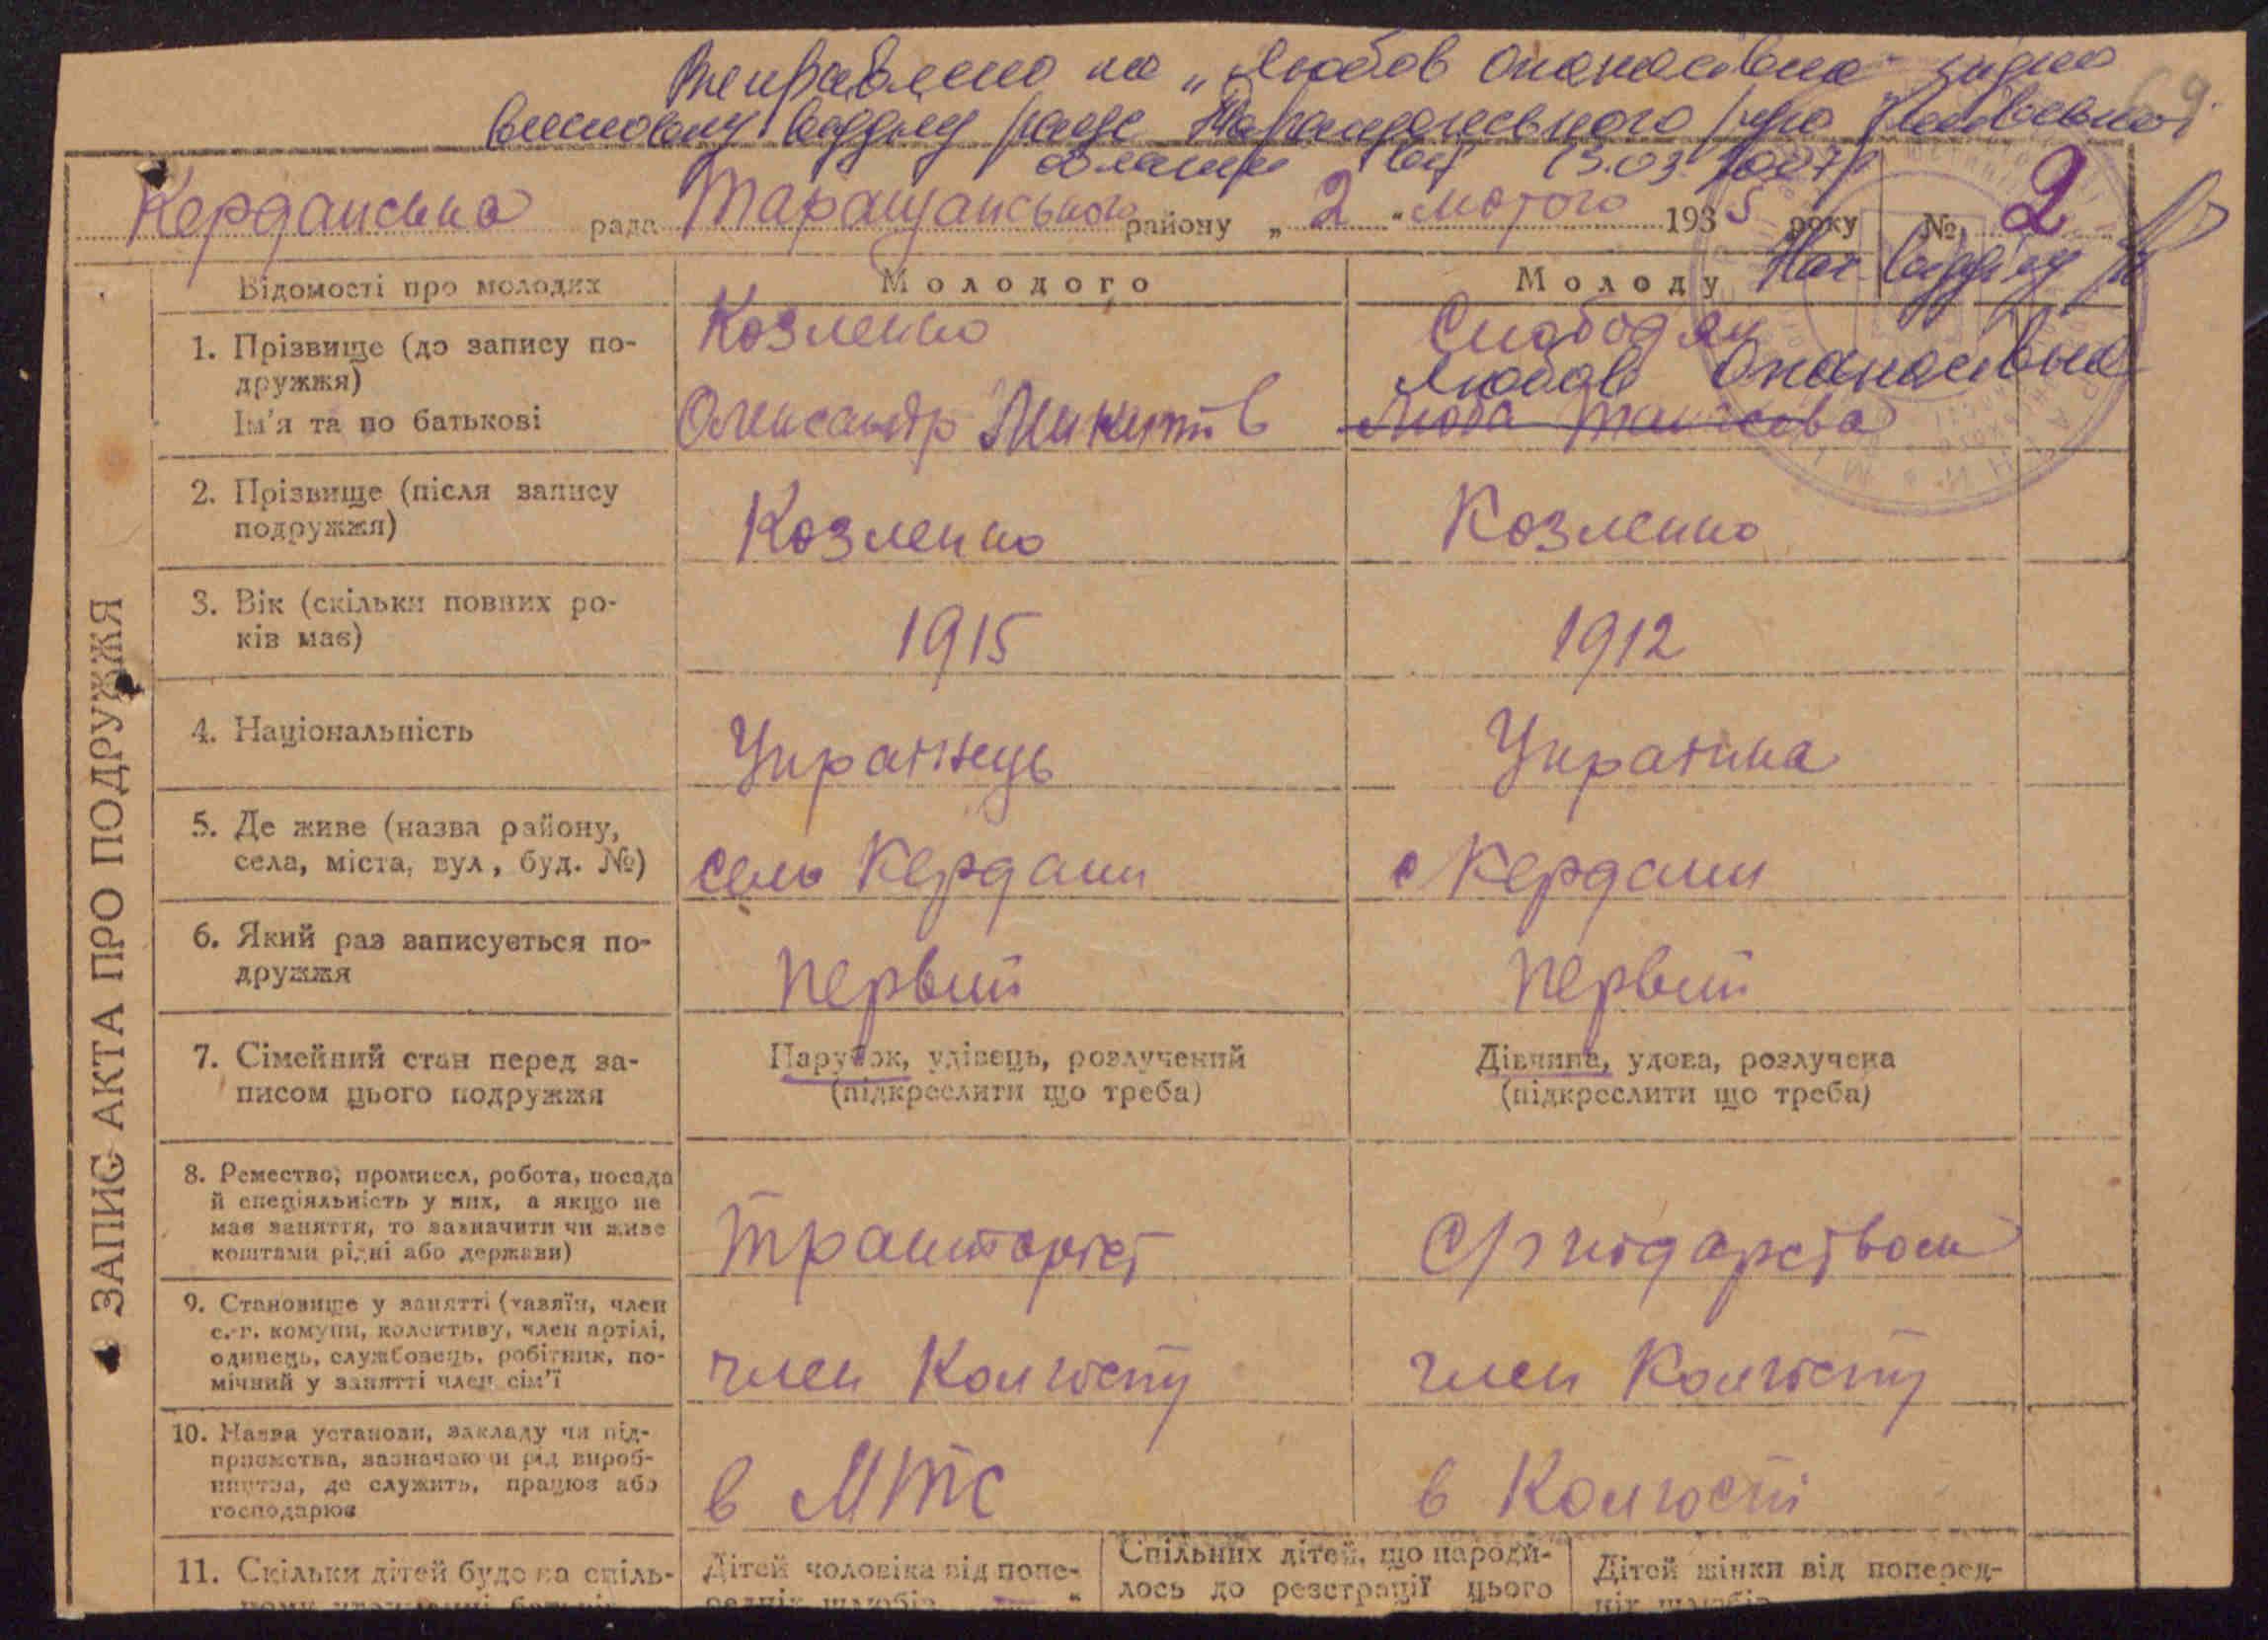 Виправлено на „Любов Опанасівна" згідно
висновку відділу рацс Таращанського р-ну Київської
області від 13.03.2007р
69.
Керданська рада Таращанського району „2" лютого 1935 року № 2
Нач відділу
Відомості про молодих Молодого Молоду
1. Прізвище (до запису по-
дружжя)
Козленко Слободян
Любов Опанасівна
Ім'я та по батькові Олександр Микитів Люба Танасова
2. Прізвище (після запису
подружжя)
Козленко Козленко
3. Вік (скільки повних ро-
ків має)
1915 1912
4. Національність Українець Українка
5. Де живе (назва району,
села, міста, вул, буд. №)
село Кердани с Кердани
6. Який раз записується по-
дружжя
первий первий
7. Сімейний стан перед за-
писом цього подружжя
Парубок, удівець, розлучений
(підкреслити що треба)
Дівчина, удова, розлучена
(підкреслити що треба)
8. Ремество, промисел, робота, посада
й спеціяльність у них, а якщо не
має заняття, то зазначити чи живе
коштами рідні або держави)
тракторіст С/г подарством
9. Становище у занятті (хазяїн, член
с.-г. комуни, колективу, член артілі,
одинець, службовець, робітник, по-
мічний у занятті член сім'ї
член Колгоспу член Колгоспу
10. Назва установи, закладу чи під-
приємства, зазначаючи рід вироб-
ництва, де служить, працює або
господарює
в МТС в Колгоспі
11. Скільки дітей буде на спіль-
ному утриманні батьків
Дітей чоловіка від попе-
редніх шлюбів
Спільних дітей, що народи-
лось до реєстрації цього
Дітей жінки від поперед-
ніх шлюбів
ЗАПИС АКТА ПРО ПОДРУЖЖЯ